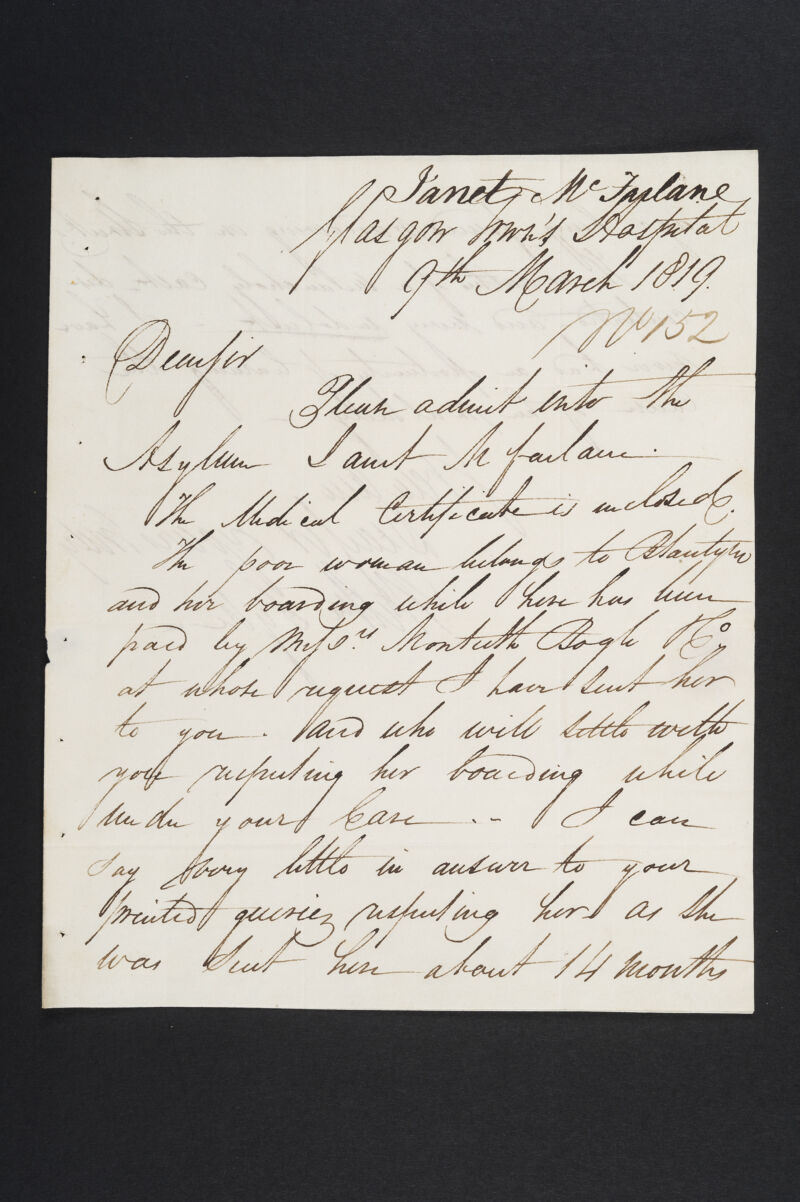 Janet McFarlane
Glasgow Town's Hospital
9th March 1819.
No 152
Dear Sir
Please admit into the
Asylum Janet McFarlane.
The Medical Certificate is inclosed.
The poor woman belongs to Blantyre
and her boarding while here has been
paid by Messrs. Monteith Bogle & Co,
at whose request I have sent her
to you. and who will settle with
you respecting her boarding while
under your Care -- I can
say very little in answer to your
printed queries respecting her as she
was sent here about 14 months